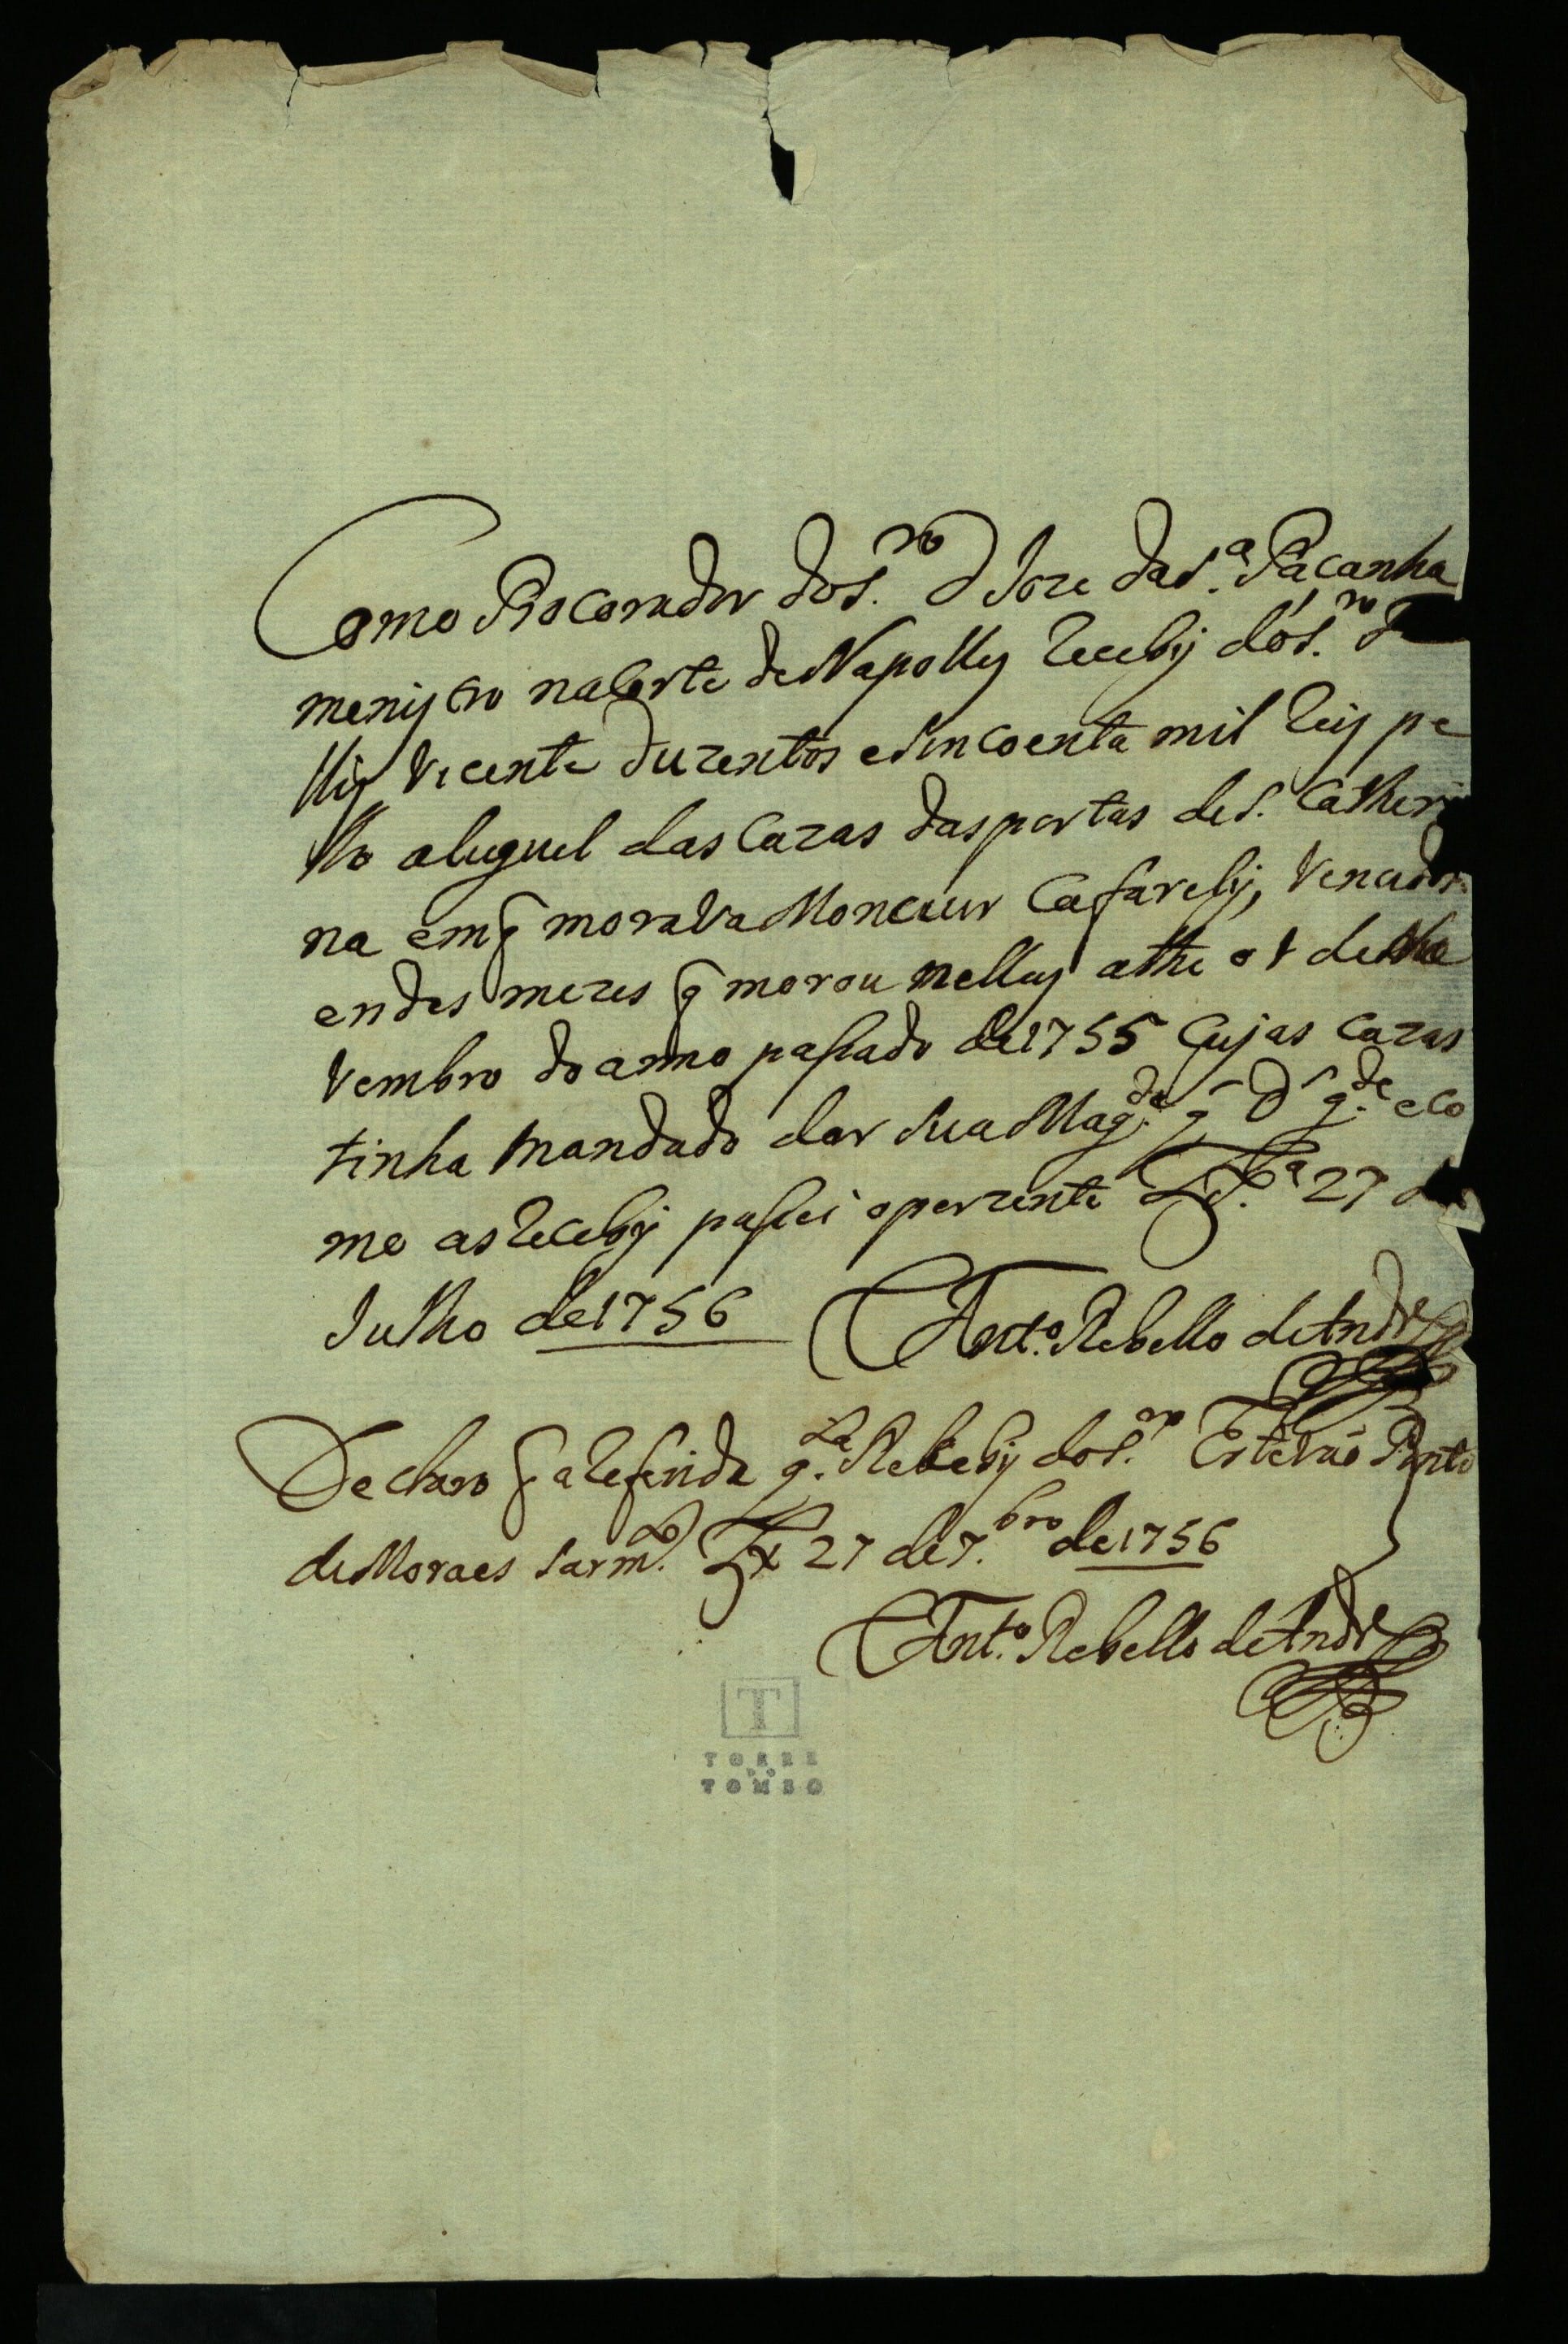 Como Procorador do S.ro D Joze da S.a Paçanha
menystro na Corte de Napolles Recebij do S.ro
llis Vicente duzentos e sincoenta mil Reis pe
llo aluguel das Cazas das portas de S. Catheri
na em q morava Monciur Cafarelij, Vencidos
em dos mezes q morou nellas athe o 1 de No
vembro do anno passado de 1755 Cujas Cazas
tinha mandado dar Sua Mag.de q Ds g.de e Co
mo as Recebij passei o perzente Lx.a 27 de
Julho de 1756 Ant.o Rebello de Andr.e
Declaro q a Referida q.ta Rebebij do S.or Estevão Pinto
de Moraes Sarm.to Lx 27 de 7.bro de 1756
Ant.o Rebello de Andr.e
T
TORRE
DO
TOMBO